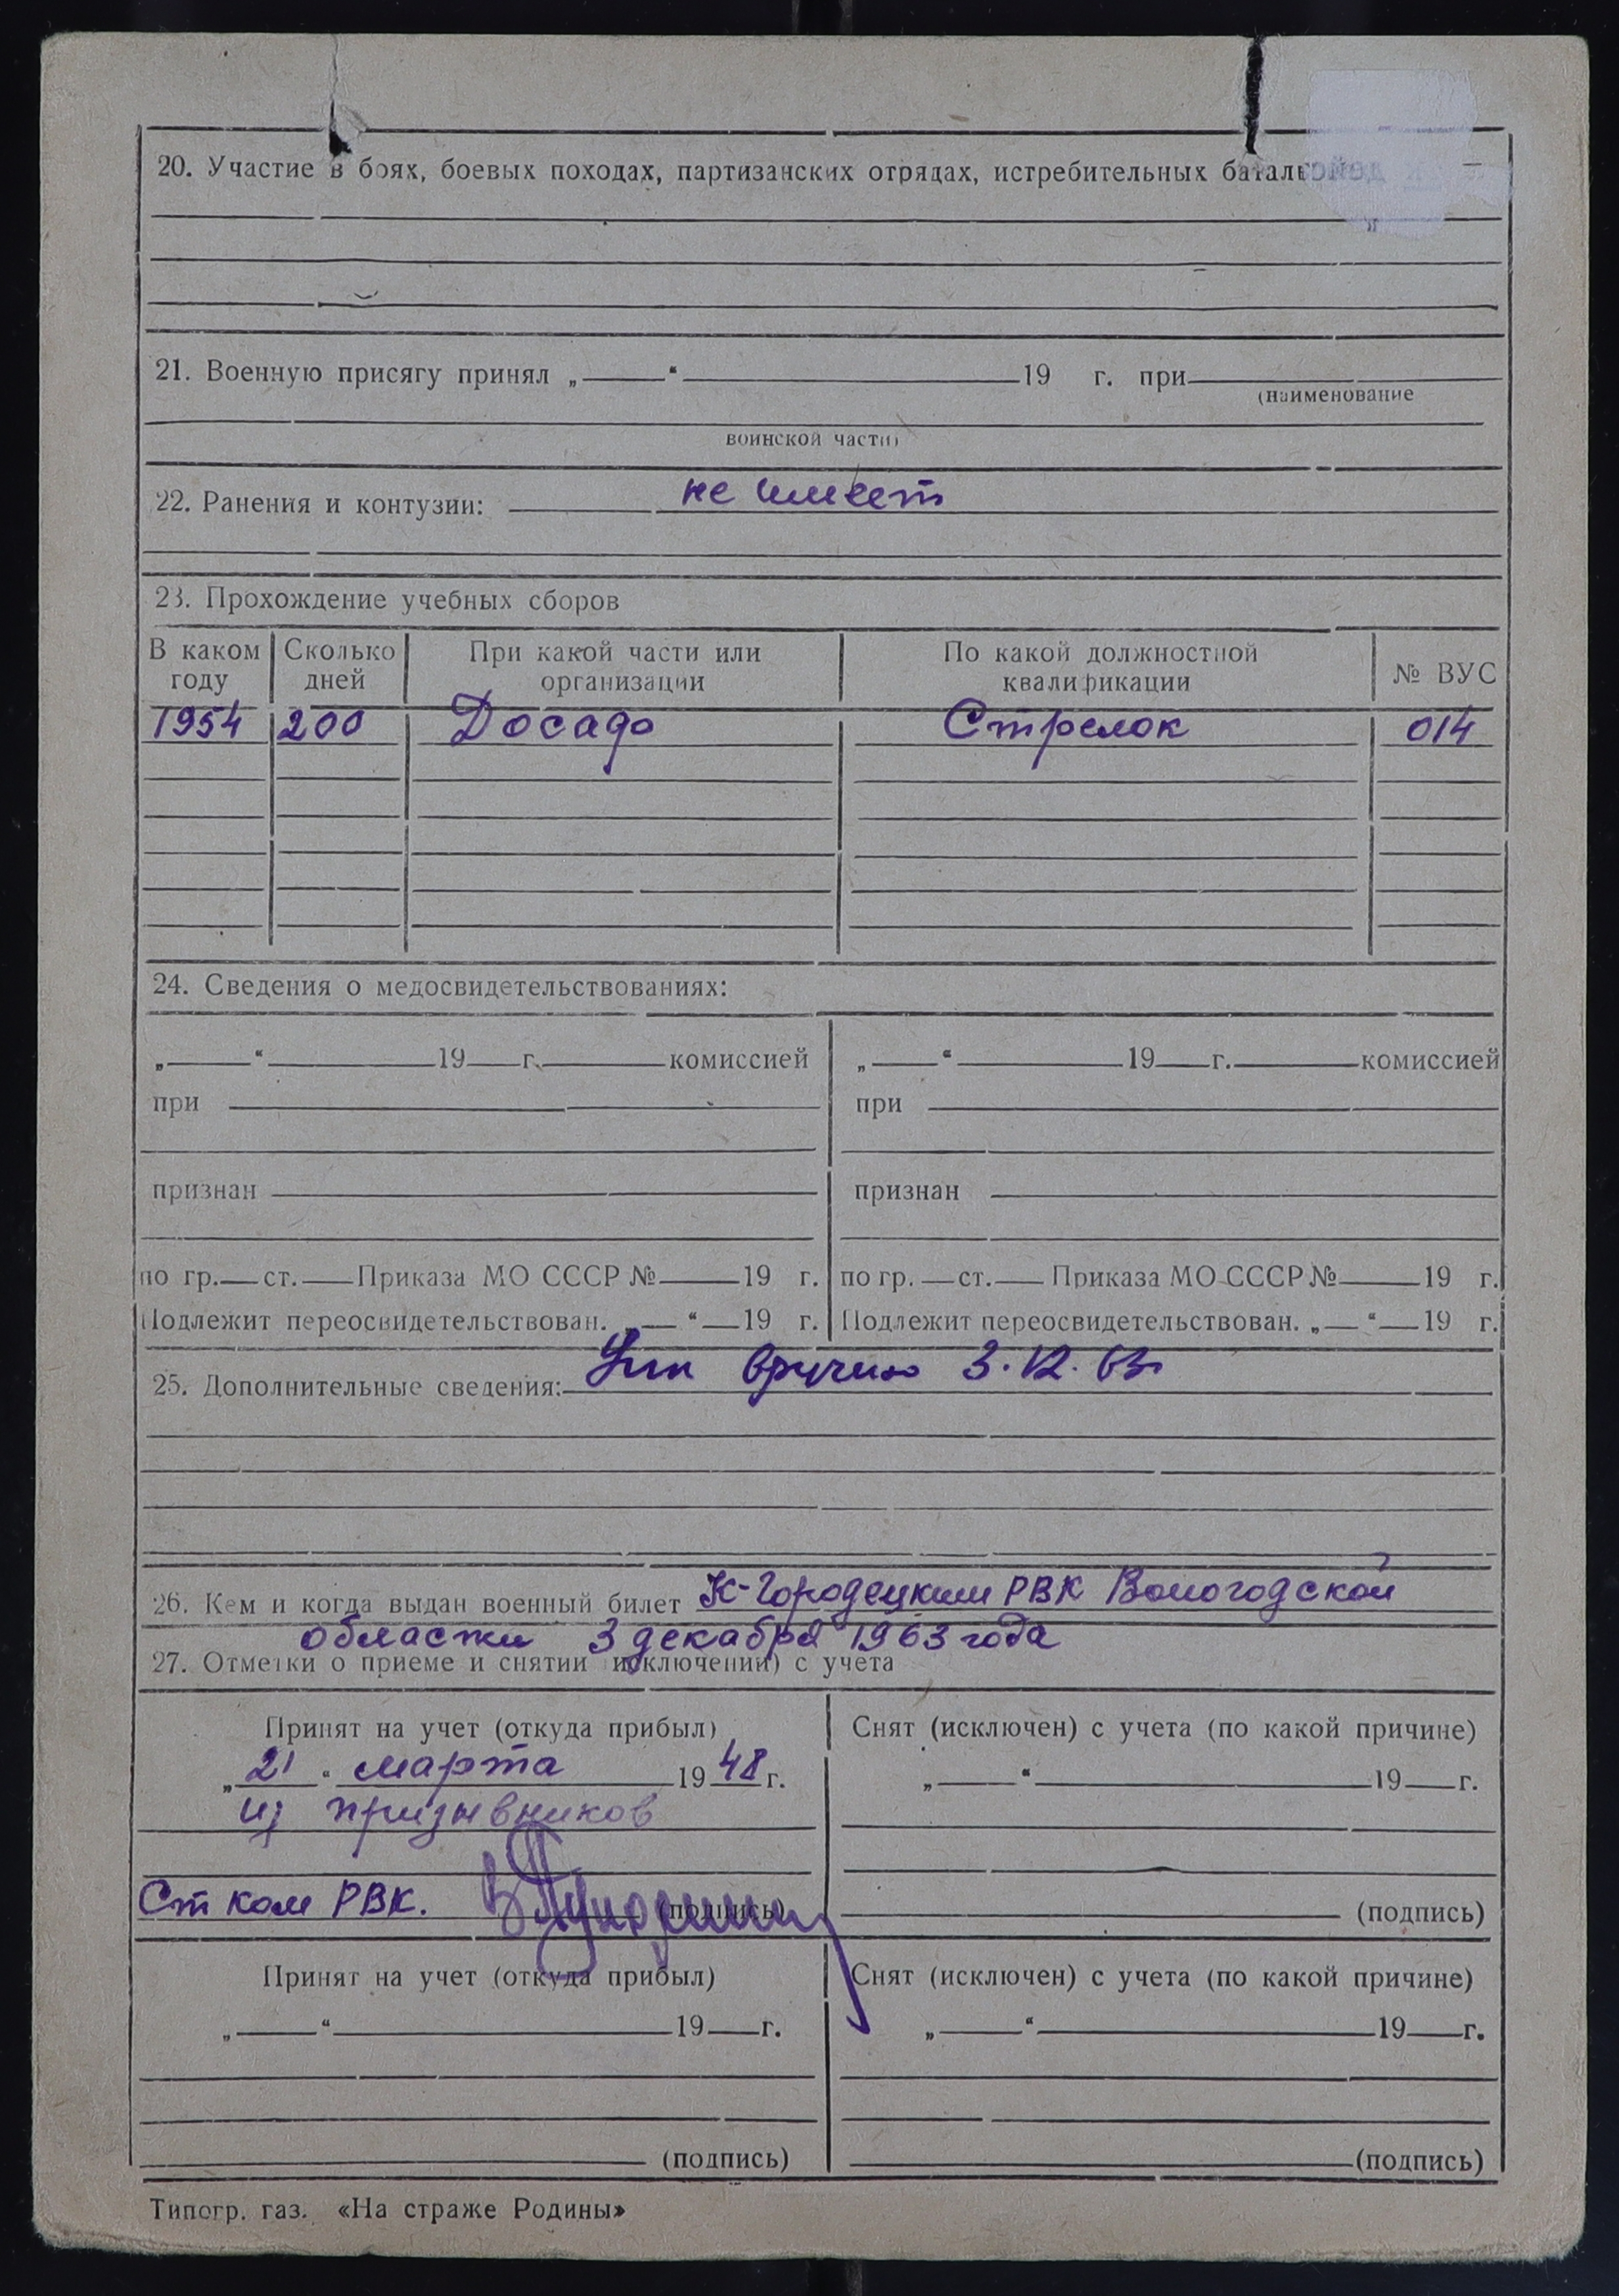 20. Участие в боях, боевых походах, партизанских отрядах, истребительных баталь
21. Военную присягу принял „ “ 19 г. при
(наименование
воинской части)
22. Ранения и контузии: не имеет
23. Прохождение учебных сборов
В каком году Сколько дней При какой части или организации По какой должностной квалификации № ВУС
1954 200 Досааф Стрелок 014
24. Сведения о медосвидетельствованиях:
„ “ 19 г. комиссией „ “ 19 г. комиссией
при при
признан признан
по гр. ст. Приказа МО СССР № 19 г. по гр. ст. Приказа МО СССР № 19 г.
Подлежит переосвидетельствован. „ “ 19 г. Подлежит переосвидетельствован. „ “ 19 г.
25. Дополнительные сведения: вручено 3.12.63г
26. Кем и когда выдан военный билет К-Городецким РВК Вологодской
области 3 декабря 1963 года
27. Отметки о приеме и снятии исключении) с учета
Принят на учет (откуда прибыл) Снят (исключен) с учета (по какой причине)
„21“ марта 1948 г. „ “ 19 г.
из призывников
Ст ком РВК. (подпись) (подпись)
Принят на учет (откуда прибыл) Снят (исключен) с учета (по какой причине)
„ “ 19 г. „ “ 19 г.
(подпись) (подпись)
Типогр. газ. «На страже Родины»